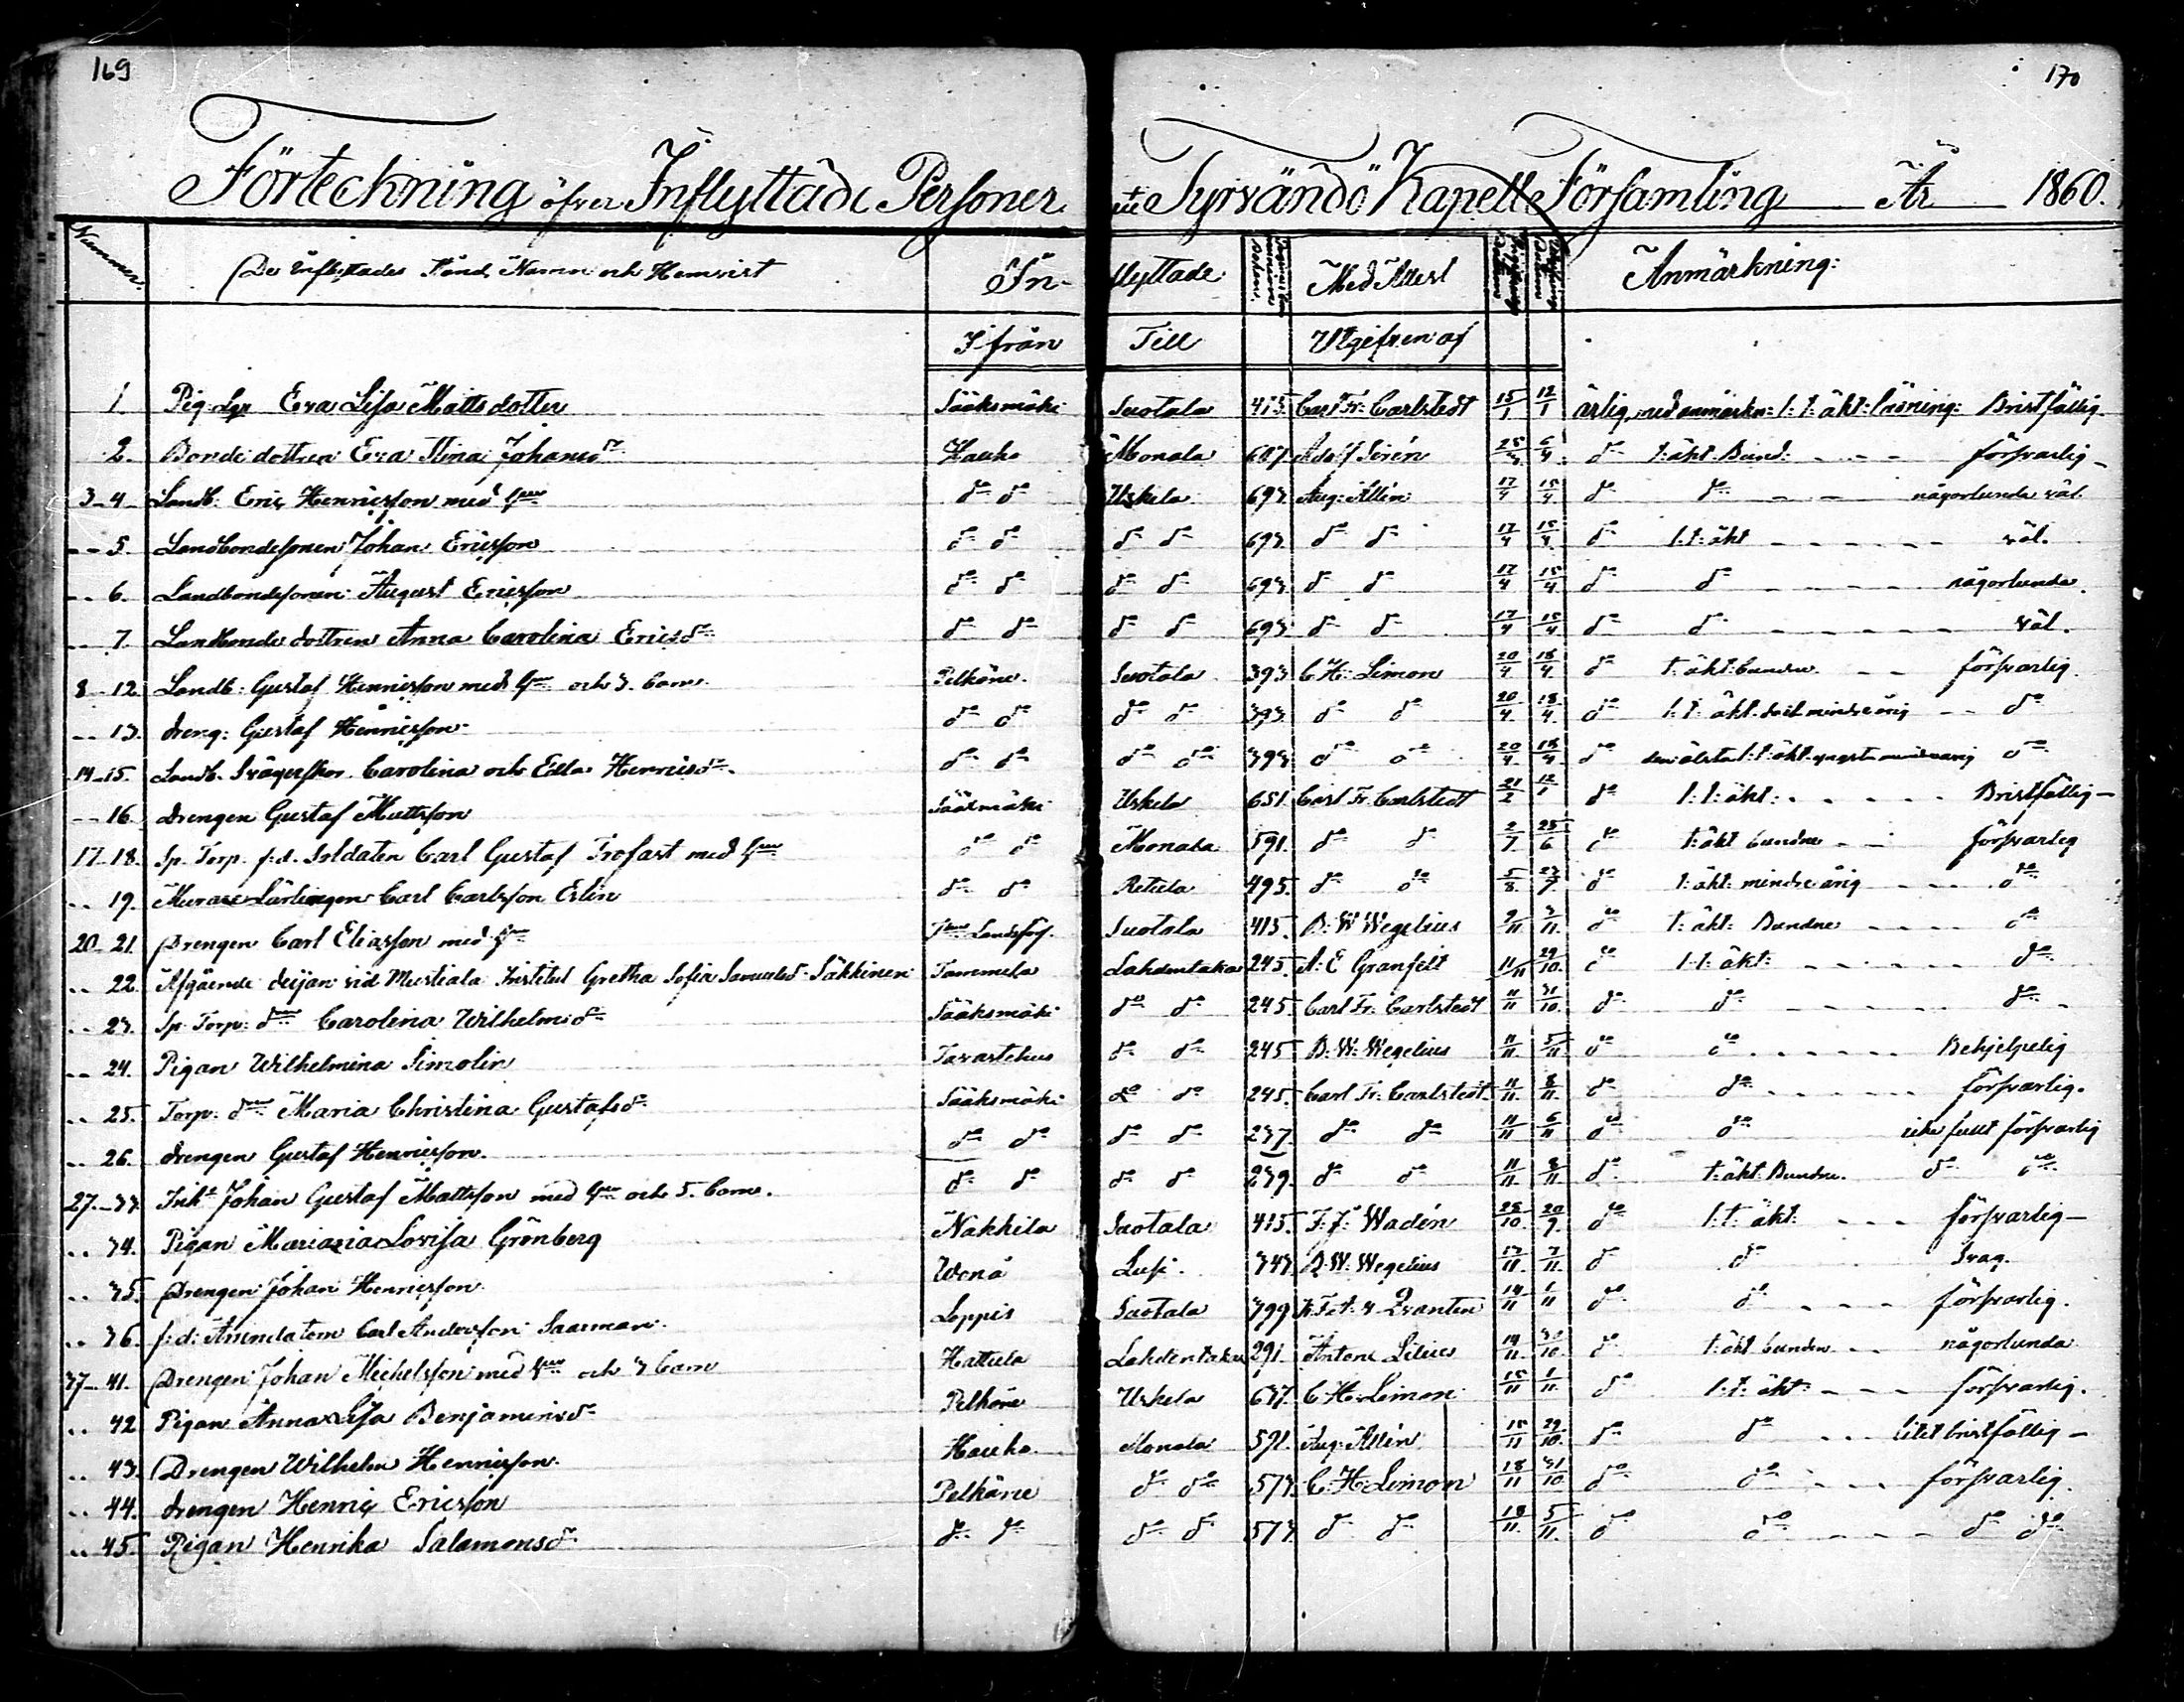 169
170
Förteckning öfver Inflyttade Personer till Tyrvändö Kapell Församling År 1860.
Nummer. De Inflyttades Stånd, Namn och Hemvist In- flyttade Med Attest Anmärkning:
Ifrån Till Utgifven af
1 Pig. Eva Lisa Matts dotter Sääksmäki Suotala 415. Carl Fr: Carlstedt 15/1 12/1 ärlig, med anmärkn: l: t: äkt: läsning: Bristfällig
2. Bonde dottren Eva Stina Johansdr Hauho Monala 6 Adolf Sirén 6/4 do t: äkt Bund: försvarlig
3-4 Landb: Eric Henricsson med hu do do Uskela 693. Aug: Allén 17/4 15/4 do do någorlunda väl.
5. Landbondesonen Johan Ericsson do do do do 693. do do 17/4 15/4 do l: t: äkt väl.
6. Landbondesonen August Ericsson do do do do 693. do do 17/4 15/4 do do någorlunda
7. Landbonde dottren Anna Carolina Ericsdr do do do do 693. do do 17/4 15/4 do do väl.
8-12. Landb: Gustaf Henricsson med hu och 3. barn. Pelkäne. Suotala 393. C H: Limon 20/4 18/4 do t: äkt: bunden försvarlig
13. Dreng: Gustaf Henricsson do do do do 393. do do 20/4 18/4 do l: t: äkt. mindreårig do
14-15. Landb. Svägerskor Carolina och Edla Henricsdr. do do do do 393 do do 20/4 18/4 do den älsta l: t: äkt. yngst. mindreårig do
16 Drengen Gustaf Mattsson Sääxmäki Uskela 651. Carl Fr. Carlstedt 21/2 12/1 do l: t: äkt: Bristfällig
17-18. Sp. Torp. f: d. Soldaten Carl Gustaf Trofast med hu do do Monala 591. do do 2/7 25/6 do t: äkt bunden försvarlig
19. Murare Lärlingen Carl Carlsson Eslin do do Retula 495. do do 5/8. 23/7. do t: äkt: mindreårig do
20-21. Drengen Carl Eliasson med hu Landsförs. Suotala 415. B: W Wegelius 9/11 3/11. do t: äkt: Bunden do
22. Afgående dejjan vid Mustiala Institut Gretha Sofia Samuelsd. Säkkinen Tammela Lahdentaka 245. A: E Granfelt 11/11 29/10. do l: t: äkt: do
23. Sp. Torp: dr Carolina Wilhelmsdr Sääksmäki do do 245. Carl Fr: Carlstedt 11/11 31/10. do do do
24. Pigan Wilhelmina Simolin Tavastehus do do 245 B: W: Wegelius 11/11. 5/11 do do Behjelpelig
25. Torp: dr Maria Christina Gustafsdr Sääksmäki do do 245. Carl Fr: Carlstedt 11/11. 8/11. do do försvarlig.
26. Drengen Gustaf Henricsson. do do do do 237. do do 11/11 6/11 do do icke fullt försvarlig
27.-33. Inh. Johan Gustaf Mattsson med hu och 5. barn. do do do do 239. do do 11/11. 8/11 do t: äkt Bunden. do do
34. Pigan Maria Lovisa Grönberg Nakkila Suotala 415. F: F: Wadén 28/10. 20/9. do l: t: äkt: försvarlig
35. Drengen Johan Henricsson. Wånå Lusi. 343. B. W: Wegelius 13/11. 7/11. do do Svag.
36. f: d: Carl Andersson Saarman. Loppis Suotala 399 14/11 1/11 do do försvarlig.
37-41. Drengen Johan Michelsson med hu och 3 barn Hattula Lahdentaka 291. Antone Lilius 14/11. 30/10. do t: äkt bunden någorlunda
42 Pigan Anna Lisa Benjaminsdr Pelkäne Uskela 637. C. H: Limon 15/11 1/11. do l: t: äkt: försvarlig.
43. Drengen Wilhelm Henricsson. Hauho Monala 591. Aug: Allén 15/11 29/10. do do litet bristfällig
44. Drengen Henric Ericsson Pelkäne do do 573. C: H: Limon 18/11 31/10. do do försvarlig
45. Pigan Henrika Salamonsdr do do do do 573. do do 18/11. 5/11. do do do do